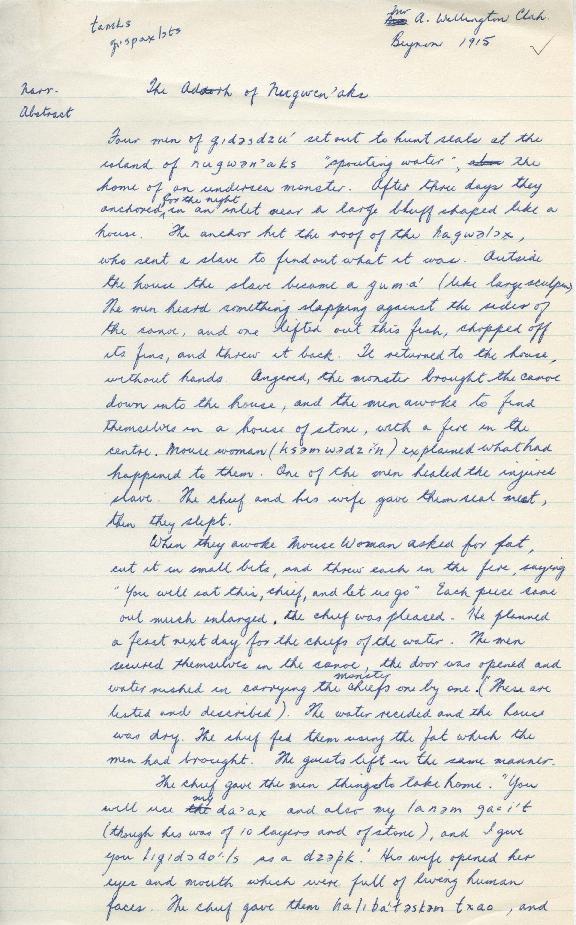 tamks
gispaxlɔts
Mr A. Wellington Clah.
Beynon 1915
narr.
Abstract
The Adaorh of Nugwen'aks
Four men of gidəsdzu' set out to hunt seals at the
island of nugwən'aks "spouting water", the
home of an undersea monster. After three days they
anchored for the night in an inlet near a large bluff shaped like a
house. The anchor hit the roof of the nagwəlɔx,
who sent a slave to find out what it was. Outside
the house the slave became a guma' (like large sculpin)
The men heard something slapping against the sides of
the canoe, and one lifted out this fish, chopped off
its fins, and threw it back. It returned to the house,
without hands. Angered, the monster brought the canoe
down into the house, and the men awoke to find
themselves in a house of stone, with a fire in the
centre. Mouse woman (ksəmwədzi'n) explained what had
happened to them. One of the men healed the injured
slave. The chief and his wife gave them seal meat,
then they slept.
When they awoke Mouse Woman asked for fat,
cut it in small bits, and threw each in the fire, saying
"You will eat this, chief, and let us go" Each piece came
out much enlarged, the chief was pleased. He planned
a feast next day, for the chiefs of the water. The men
secured themselves in the canoe, the door was opened and
water rushed in carrying the monster chiefs one by one. (These are
listed and described). The water receded and the house
was dry. The chief fed them using the fat which the
men had brought. The guests left in the same manner.
The chief gave the men things to take home. "You
will use my da'ax and also my lanəm gaci't
(though his was of 10 layers and of stone), and I give
you ligidədo'ls as a dzəpk." His wife opened her
eyes and mouth which were full of living human
faces. The chief gave them haliba'təskəm txao, and